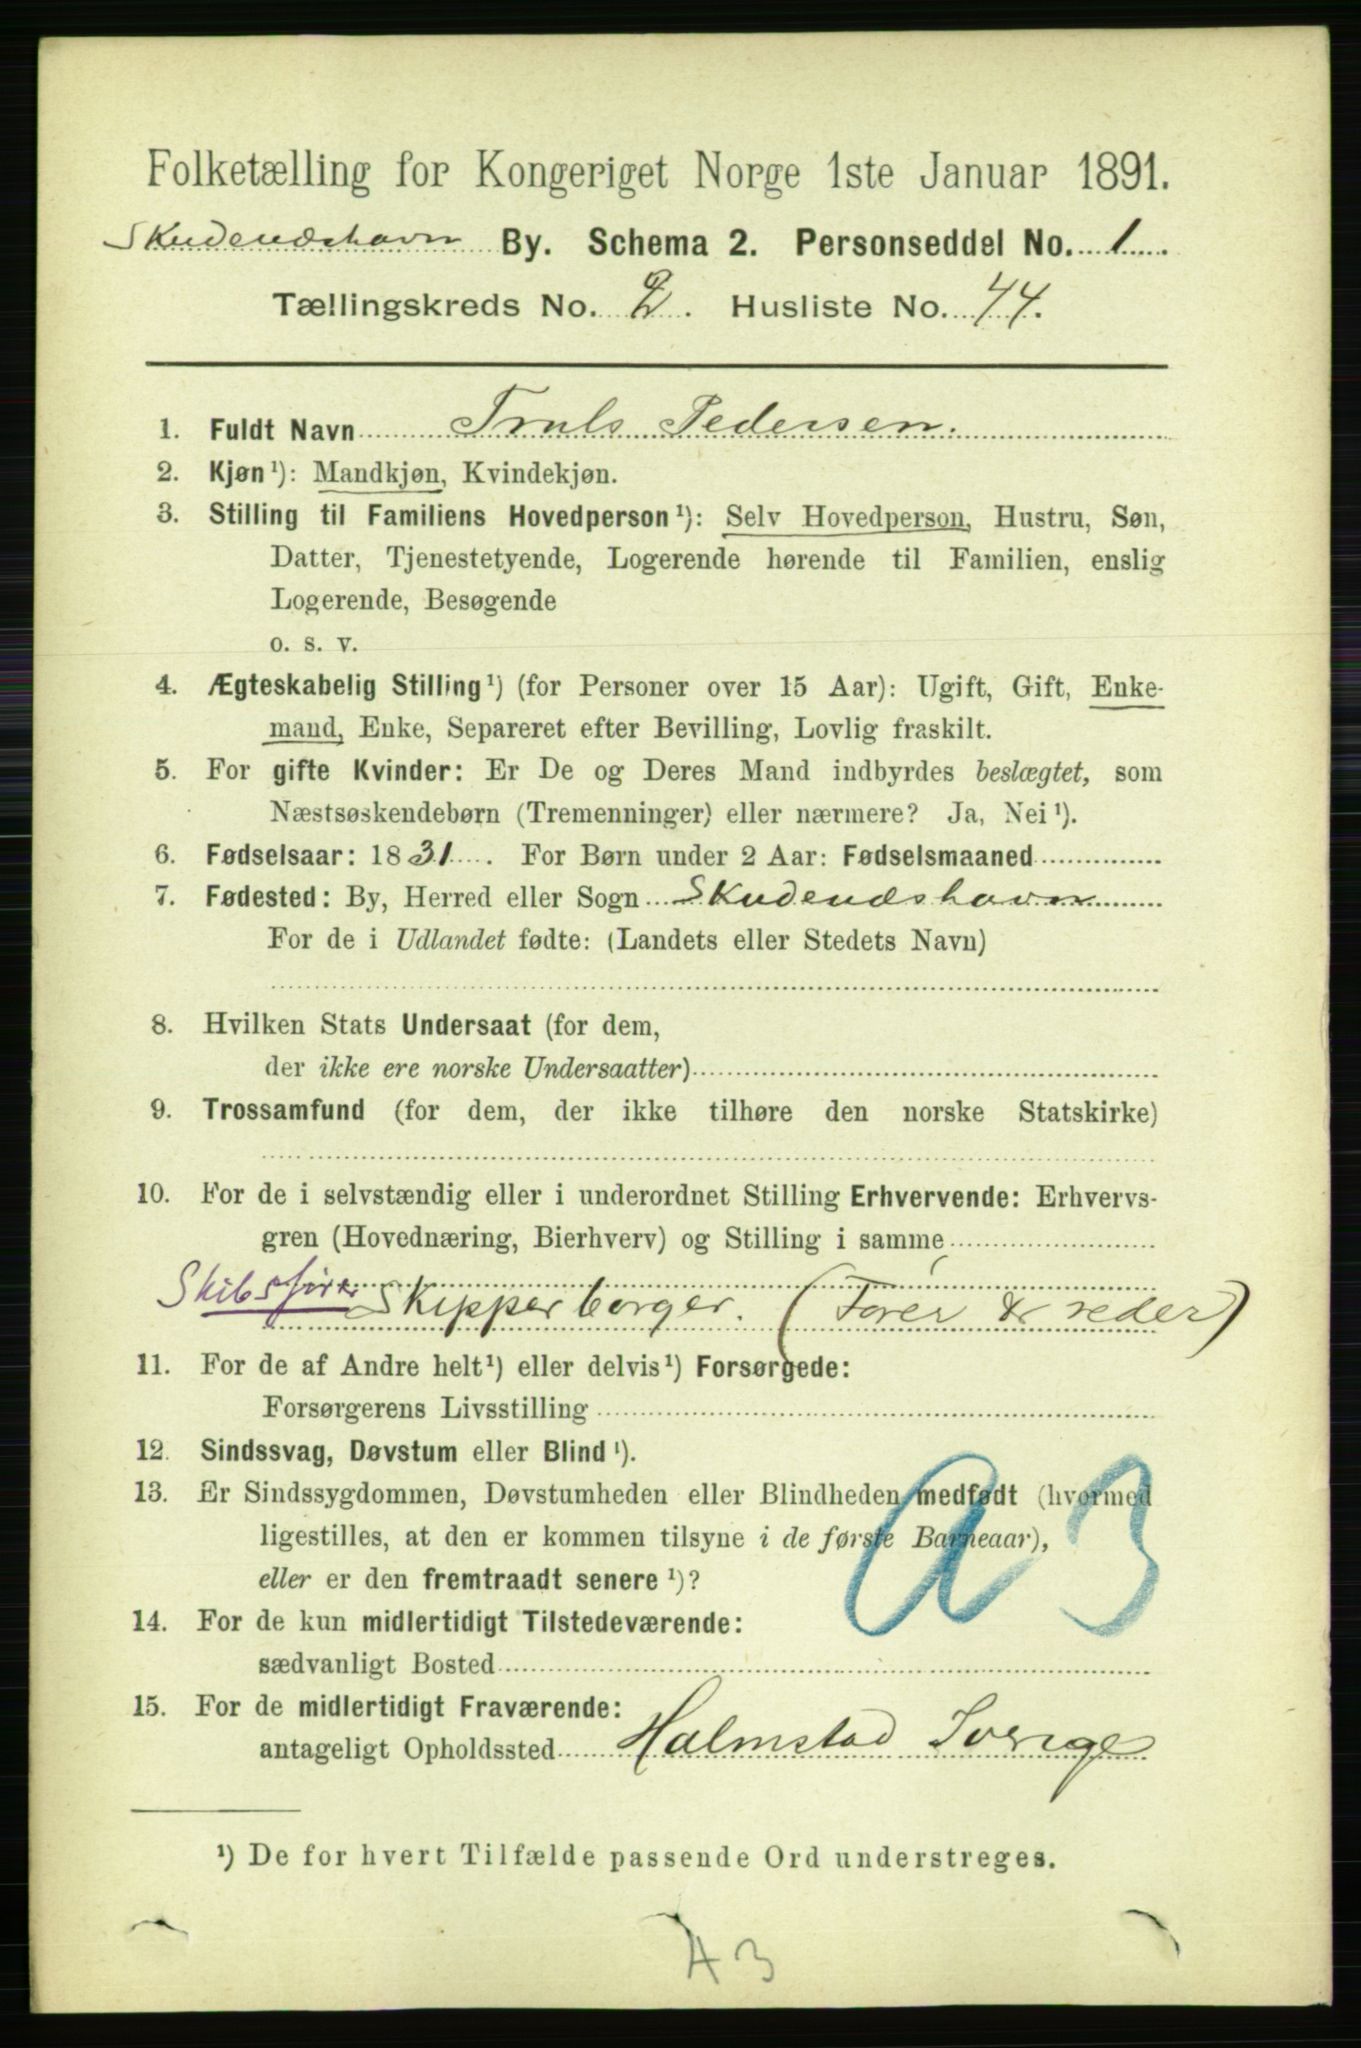 Folketælling for Kongeriget Norge 1ste Januar 1891.
Skudeneshavn By. Schema 2. Personseddel No. 1.
Tællingskreds No. 2. Husliste No. 44.
1. Fuldt Navn Truls Pedersen.
2. Kjøn ¹): Mandkjøn, Kvindekjøn.
3. Stilling til Familiens Hovedperson ¹): Selv Hovedperson, Hustru, Søn,
Datter, Tjenestetyende, Logerende hørende til Familien, enslig
Logerende, Besøgende
o. s. v.
4. Ægteskabelig Stilling ¹) (for Personer over 15 Aar): Ugift, Gift, Enke-
mand, Enke, Separeret efter Bevilling, Lovlig fraskilt.
5. For gifte Kvinder: Er De og Deres Mand indbyrdes beslægtet, som
Næstsøskendebørn (Tremenninger) eller nærmere? Ja, Nei ¹).
6. Fødselsaar: 1831. For Børn under 2 Aar: Fødselsmaaned
7. Fødested: By, Herred eller Sogn Skudeneshavn
For de i Udlandet fødte: (Landets eller Stedets Navn)
8. Hvilken Stats Undersaat (for dem,
der ikke ere norske Undersaatter)
9. Trossamfund (for dem, der ikke tilhøre den norske Statskirke)
10. For de i selvstændig eller i underordnet Stilling Erhvervende: Erhvervs-
gren (Hovednæring, Bierhverv) og Stilling i samme
Skibsfører Skipperborger. (Fører & reder)
11. For de af Andre helt ¹) eller delvis ¹) Forsørgede:
Forsørgerens Livsstilling
12. Sindssvag, Døvstum eller Blind ¹).
13. Er Sindssygdommen, Døvstumheden eller Blindheden medfødt (hvormed
ligestilles, at den er kommen tilsyne i de første Barneaar),
eller er den fremtraadt senere ¹)?
a 3
14. For de kun midlertidigt Tilstedeværende:
sædvanligt Bosted
15. For de midlertidigt Fraværende:
antageligt Opholdssted Halmstad Sverige
¹) De for hvert Tilfælde passende Ord understreges.
A 3